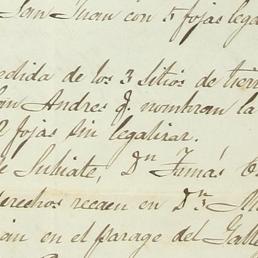 San Juan con 5 fojas lega
edida de los 3 sitios de tierr
San Andres q. nombran la
fojas sin legalizar.
e Subiate, Dn Tomás
derechos recaen en Dn
en el parage del Gall